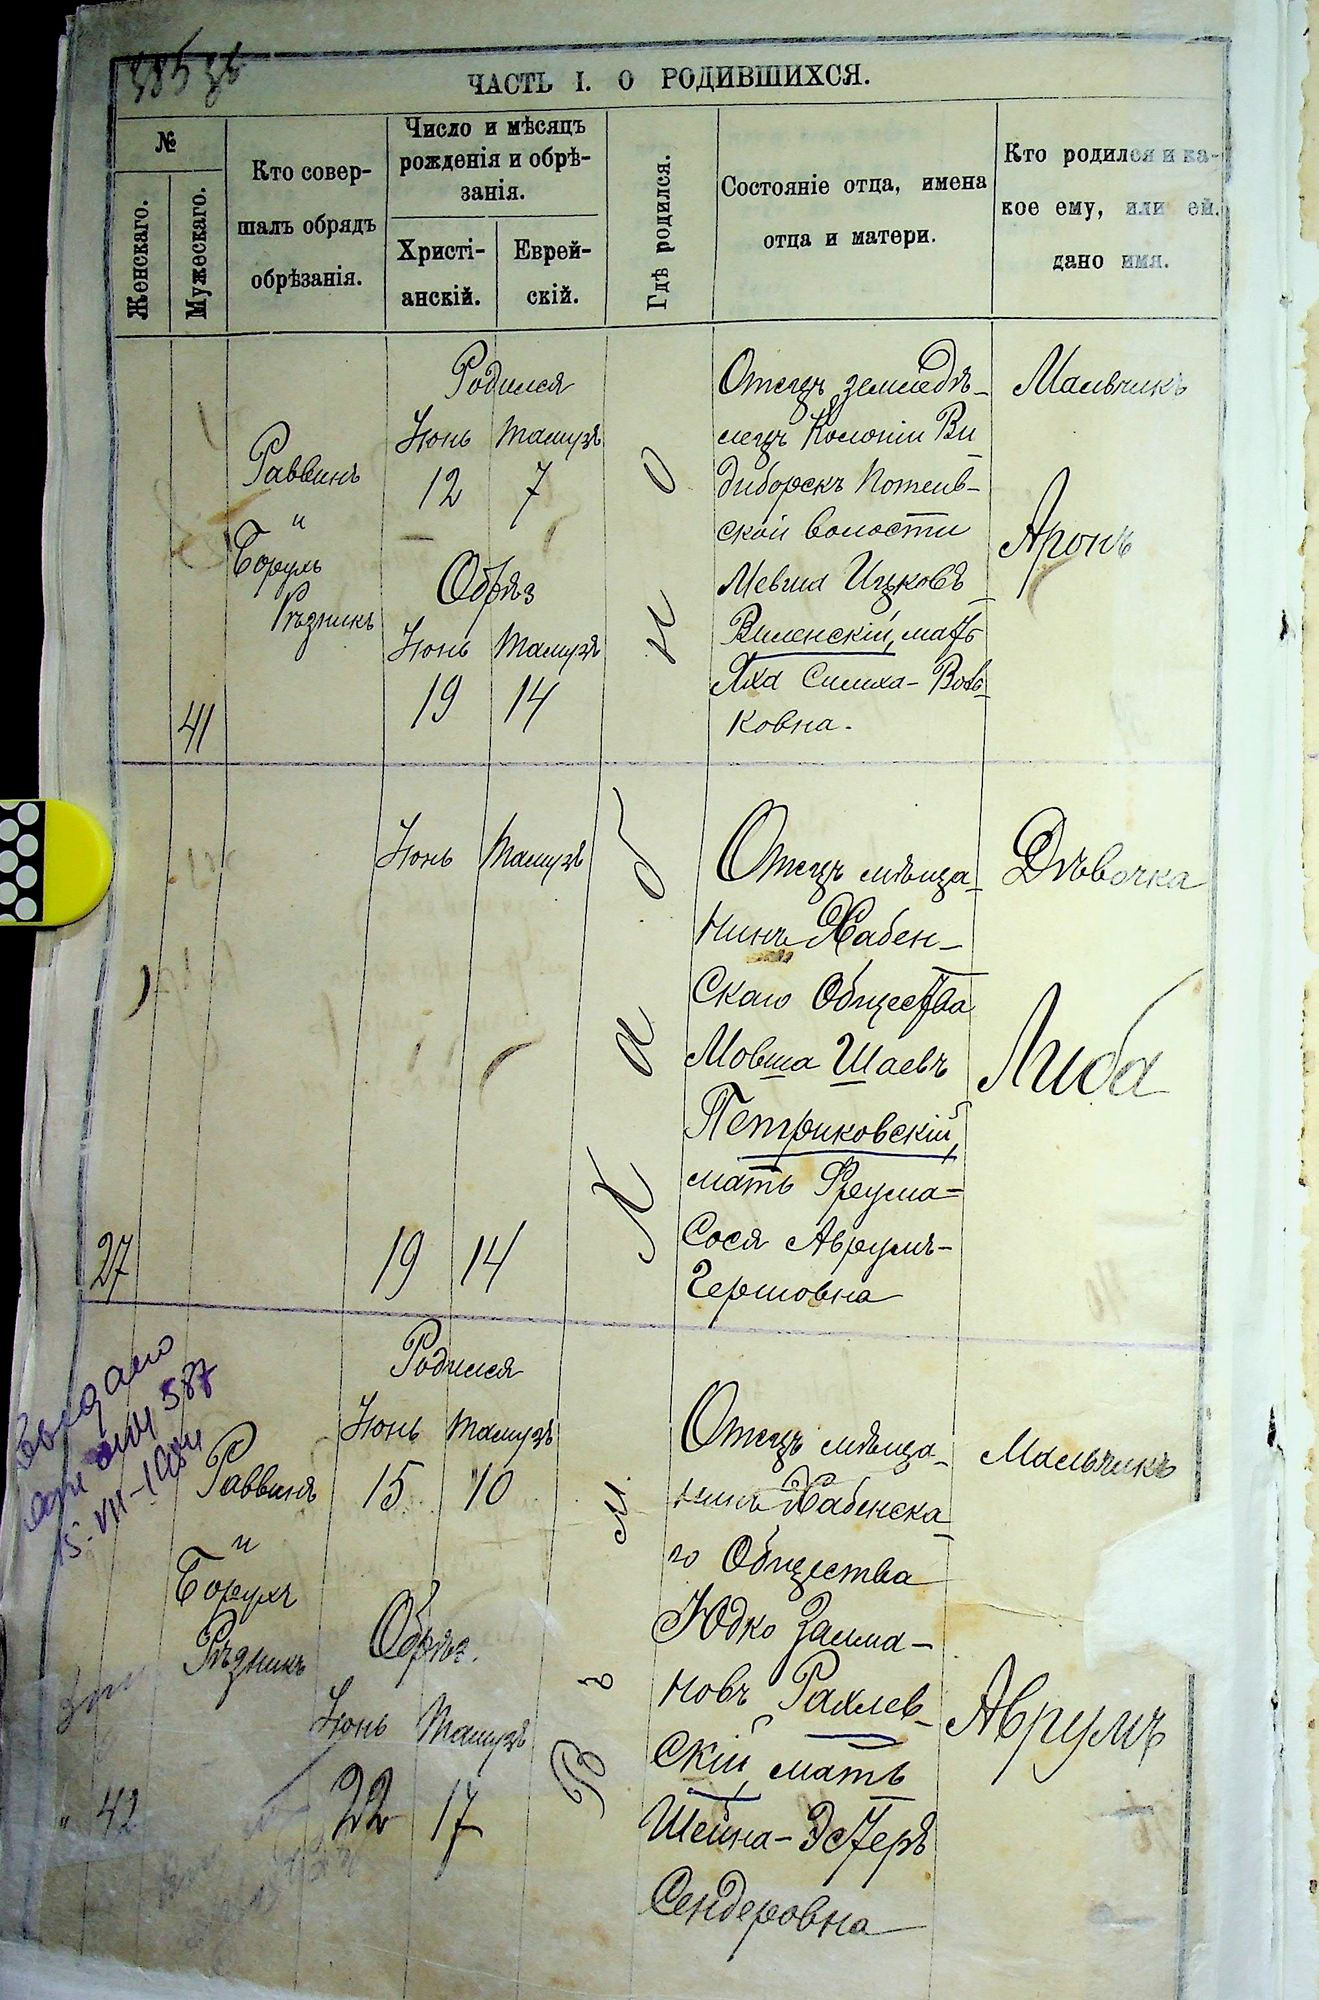 ЧАСТЬ I. О РОДИВШИХСЯ.
№
Женскаго.
Мужескаго.
Кто совер-
шалъ обрядъ
обрѣзанія.
Число и мѣсяцъ
рожденія и обрѣ-
занія.
Христі-
анскій.
Еврей-
скій.
Гдѣ родился.
Состояніе отца, имена
отца и матери.
Кто родился и ка-
кое ему, или ей,
дано имя.
41
Раввинъ
и
Борухъ
Рѣзникъ
Родился
Іюнь Тамузъ
12 7
Обрѣз
Іюнь Тамузъ
19 14
Отецъ земледѣ-
лецъ Колоніи Ви
диборскъ
ской волости
Мевша Ицковъ
Виленскій, мать
Яха Симха-Воль
ковна.
Мальчикъ
Аронъ
27
Іюнь Тамузъ
19 14
Отецъ мѣща-
нинъ Хабен-
скаго Общества
Мовша Шаевъ
Петриковскій,
мать Фрума-
Сося Аврумъ-
Гершовна
Дѣвочка
Либа
выдано
587
15-VII-19
42
Раввинъ
и
Борухъ
Рѣзникъ
Родился
Іюнь Тамузъ
15 10
Обрѣз.
Іюнь Тамузъ
22 17
Въ м. Хабно
Отецъ мѣща-
нинъ Хабенска-
го Общества
Юдко Залма-
новъ Рахлев-
скій, мать
Шейна-Эстеръ
Сендеровна
Мальчикъ
Аврумъ